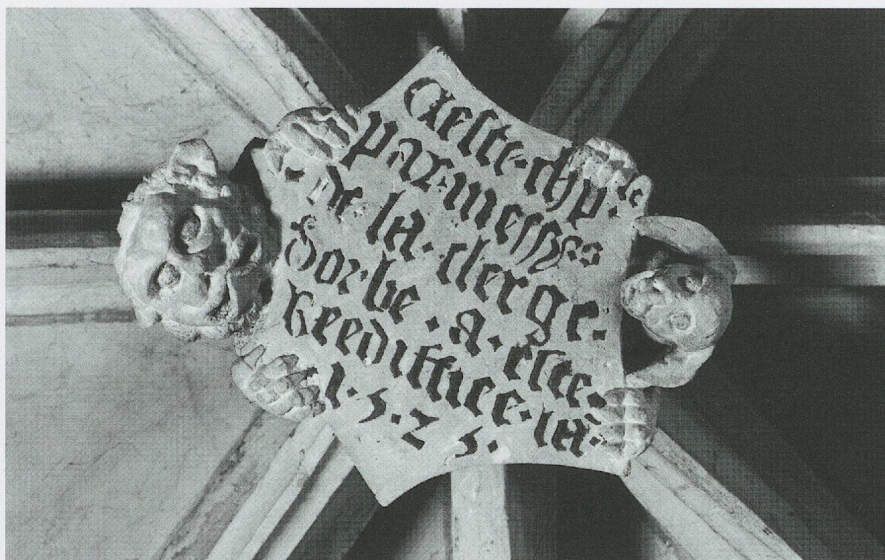 Ceste·chp·le
par·messrs
·de·la·clerge·
Sorbe·a·este·
Reediffiee·lā·
1·5·2·5·